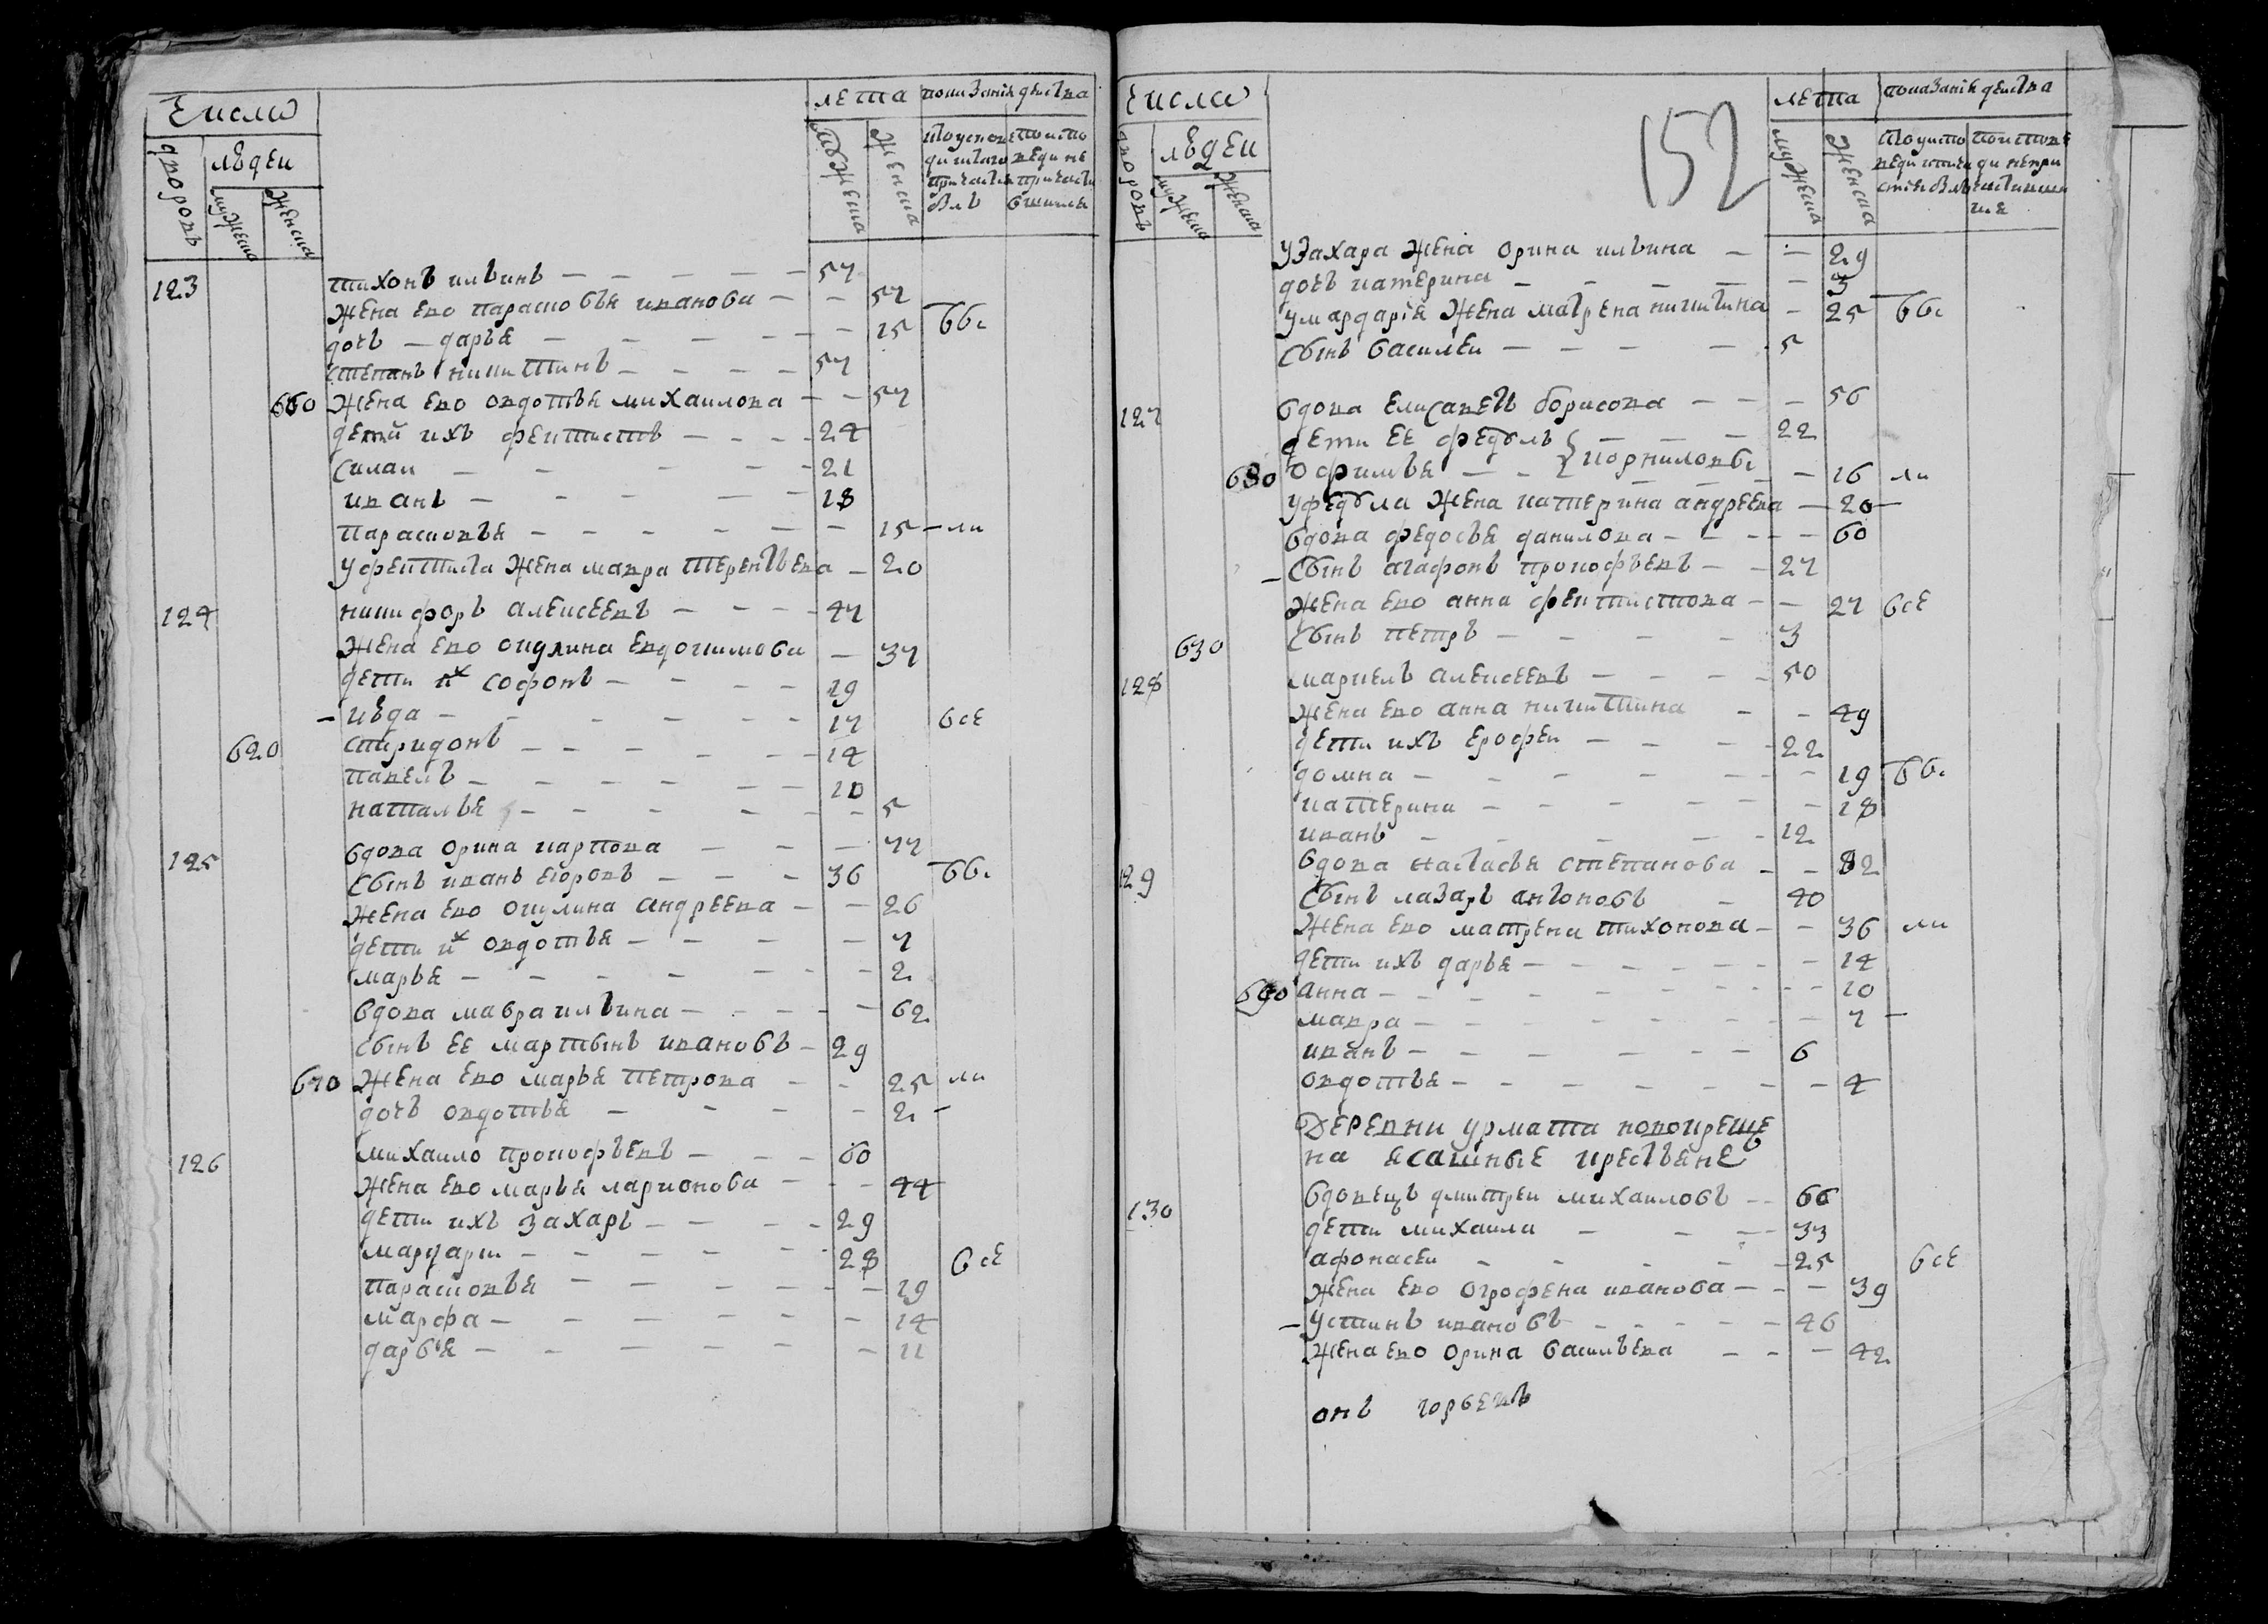 Число
лета показание действа
дворовъ
людеи
мужеска
женска
мужеска
женска
123 тихонъ ильинъ — 57
жена ево парасковья иванова — 57
дочь — дарья — 15 бы
степанъ никитинъ — 57
660 жена ево овдотья михаилова — 57
дети ихъ феитистъ — 24
силаи — 21
иванъ — 18
парасковья — 15 — ли
у феитиста жена мавра терентьева — 20
124 никифоръ алексеевъ — 47
жена ево окулина евдокимова — 37
дети их софонъ — 19
июда — 17 все
620 спиридонъ — 14
павелъ — 10
наталья — 5
125 вдова орина карпова — 77
сынъ иванъ егоровъ — 36 бы
жена ево окулина андреева — 26
дети их овдотья — 7
марья — 2
вдова мавра ильина — 62
сынъ ее мартынъ ивановъ — 29
670 жена ево марья петрова — 25 ли
дочь овдотья — 2 —
126 михаило прокофьевъ — 60
жена ево марья ларионова — 44
дети ихъ захаръ — 29
мардари — 28 все
парасковья — 19
марфа — 14
дарья — 11
152
числа
лета показание действа
дворовъ
людеи
мужеска
женска
мужеска
женска
у захара жена орина ильина — 29
дочь катерина — 3
у мардария жена матрена никитина — 25 бы
сынъ василеи — 5
127 вдова елисаветъ борисова — 56
дети ее федулъ } корниловы — 22
680 офимья — 16 ли
у федула жена катерина андреева — 20 —
вдова федосья данилова — 60
сынъ агафонъ прокофьевъ — 27
жена ево анна феитистова — 27 все
630 сынъ петръ — 3
128 маркелъ алексеевъ — 50
жена ево анна никитина — 49
дети ихъ ерофеи — 22
домна — 19 бы
катерина — 18
иванъ — 12
129 вдова настасья степанова — 82
сынъ лазаръ антоновъ — 40
жена ево матрена тихонова — 36 ли
дети ихъ дарья — 14
690 анна — 10
мавра — 7 —
иванъ — 6
овдотья — 4
Деревни урмата новокреще
на ясашные крестьяне
130 вдовецъ дмитреи михаиловъ — 66
дети михаила — 33
афонасеи — 25 все
жена ево огрофена иванова — 39
устинъ ивановъ — 46
жена ево орина васильева — 42